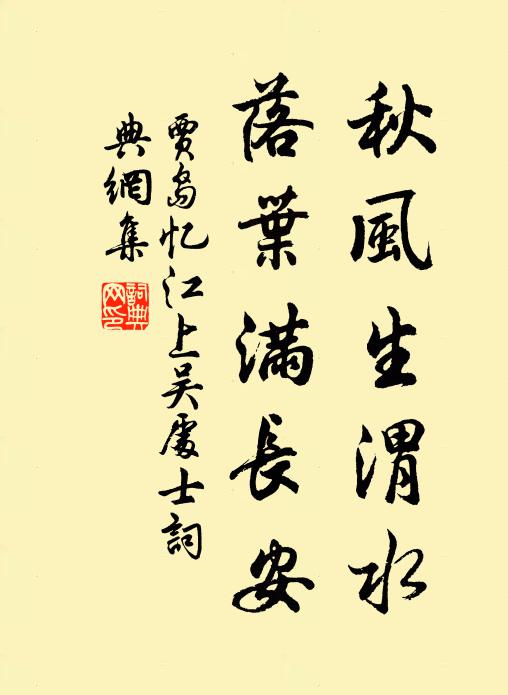 秋風生渭水
落葉滿長安
賈島忆江上吴處士詞
典網集
詞典
网印